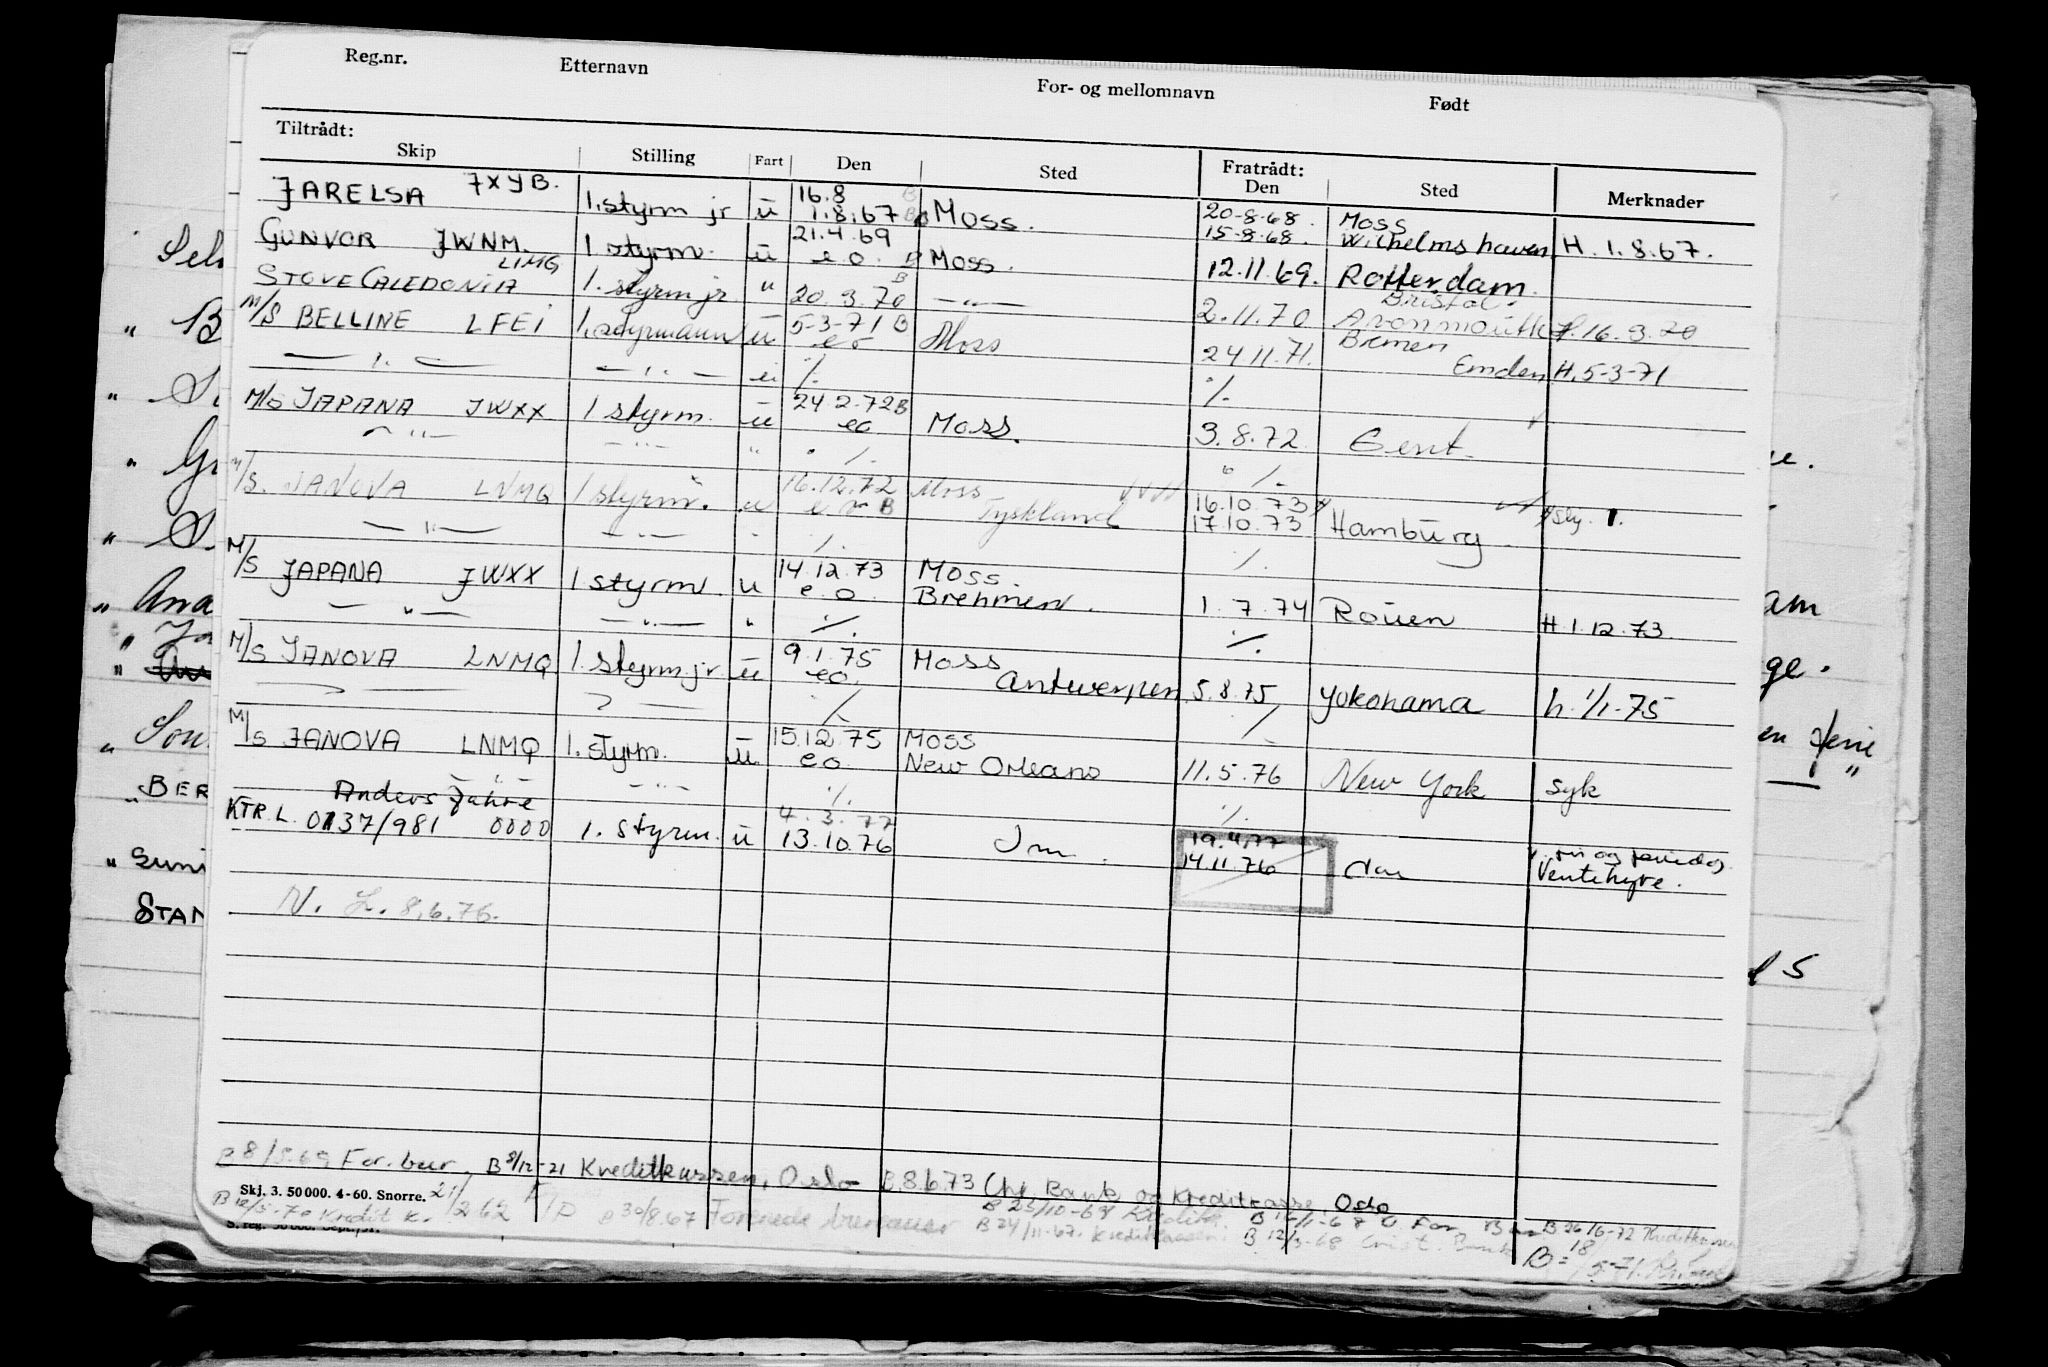 Reg.nr. Etternavn For- og mellomnavn Født
Tiltrådt: Fratrådt:
Skip Stilling Fart Den Sted Den Sted Merknader
16.8 20-8-68 Moss
JARELSA JXYB. 1.styrm jr ü 1.8.67 Moss. 15-8-68. Wilhelmshaven H. 1.8.67.
21.4.69
GUNVOR JWNM. 1 styrm. ü e.o. B Moss. 12.11.69. Rotterdam.
LIMG B Bristol.
STOVE CALEDONIA 1. styrm jr. " 20.3.70 —"— 2.11.70 Avonmouth H. 16.3.70
5-3-71 B Bremen
M/S BELLINE LFEI 1.styrmann ü e o Moss 24.11.71. Emden H. 5-3-71
—".— —".— ü ./. ./.
24.2.72 B
M/S JAPANA JWXX 1 styrm. ü eo Moss. 3.8.72 Gent.
—"— —"— " ./. ./.
16.12.72 Moss 16.10.73
M/S. JANOVA LNMQ 1 styrm. u B Tyskland 17.10.73 Hamburg
—"— —"— " ./. ./.
14.12.73 Moss.
M/S JAPANA JWXX 1 styrm. u e.o. Brehmen. 1.7.74 Rouen H.1.12.73.
—"— —"— " ./. ./.
9.1.75 Moss
M/S JANOVA LNMQ 1.styrm jr ü eo. Antwerpen 5.8.75 Yokohama h. 1/1-75
./. ./.
15.12.75 Moss
M/S JANOVA LNMQ 1. styrm. ü eo New Orleans 11.5.76 New York syk
—"— —"— ./. ./.
Anders Jahre 4.3.77 19.4.77
KTR L. 0137/981 0000 1. styrm. ü 13.10.76 14.11.76 Ventehyre.
N. L. 8.6.76.
B 8/5.69 For. bur. B 8/12-71 Kreditkassen, Oslo B.8.6.73 Chr. Bank og Kreditkasse Oslo
Skj. 3. 50 000. 4-60. Snorre. 21/2 62
B 12/5-70 Kredit k. B 30/8.67 Forenede bureauer B 25/10-69 B 24/11-67. Kreditkassen. B 12/3-68 B 26/6-72 Kreditkassen
B = 18/5-71.
Sel
" B
" S
" Gr
" S
" Ana
" Ja
"
" Sou
" BER
" Guni
STAN
e.
am
ge.
en ferie
"
S